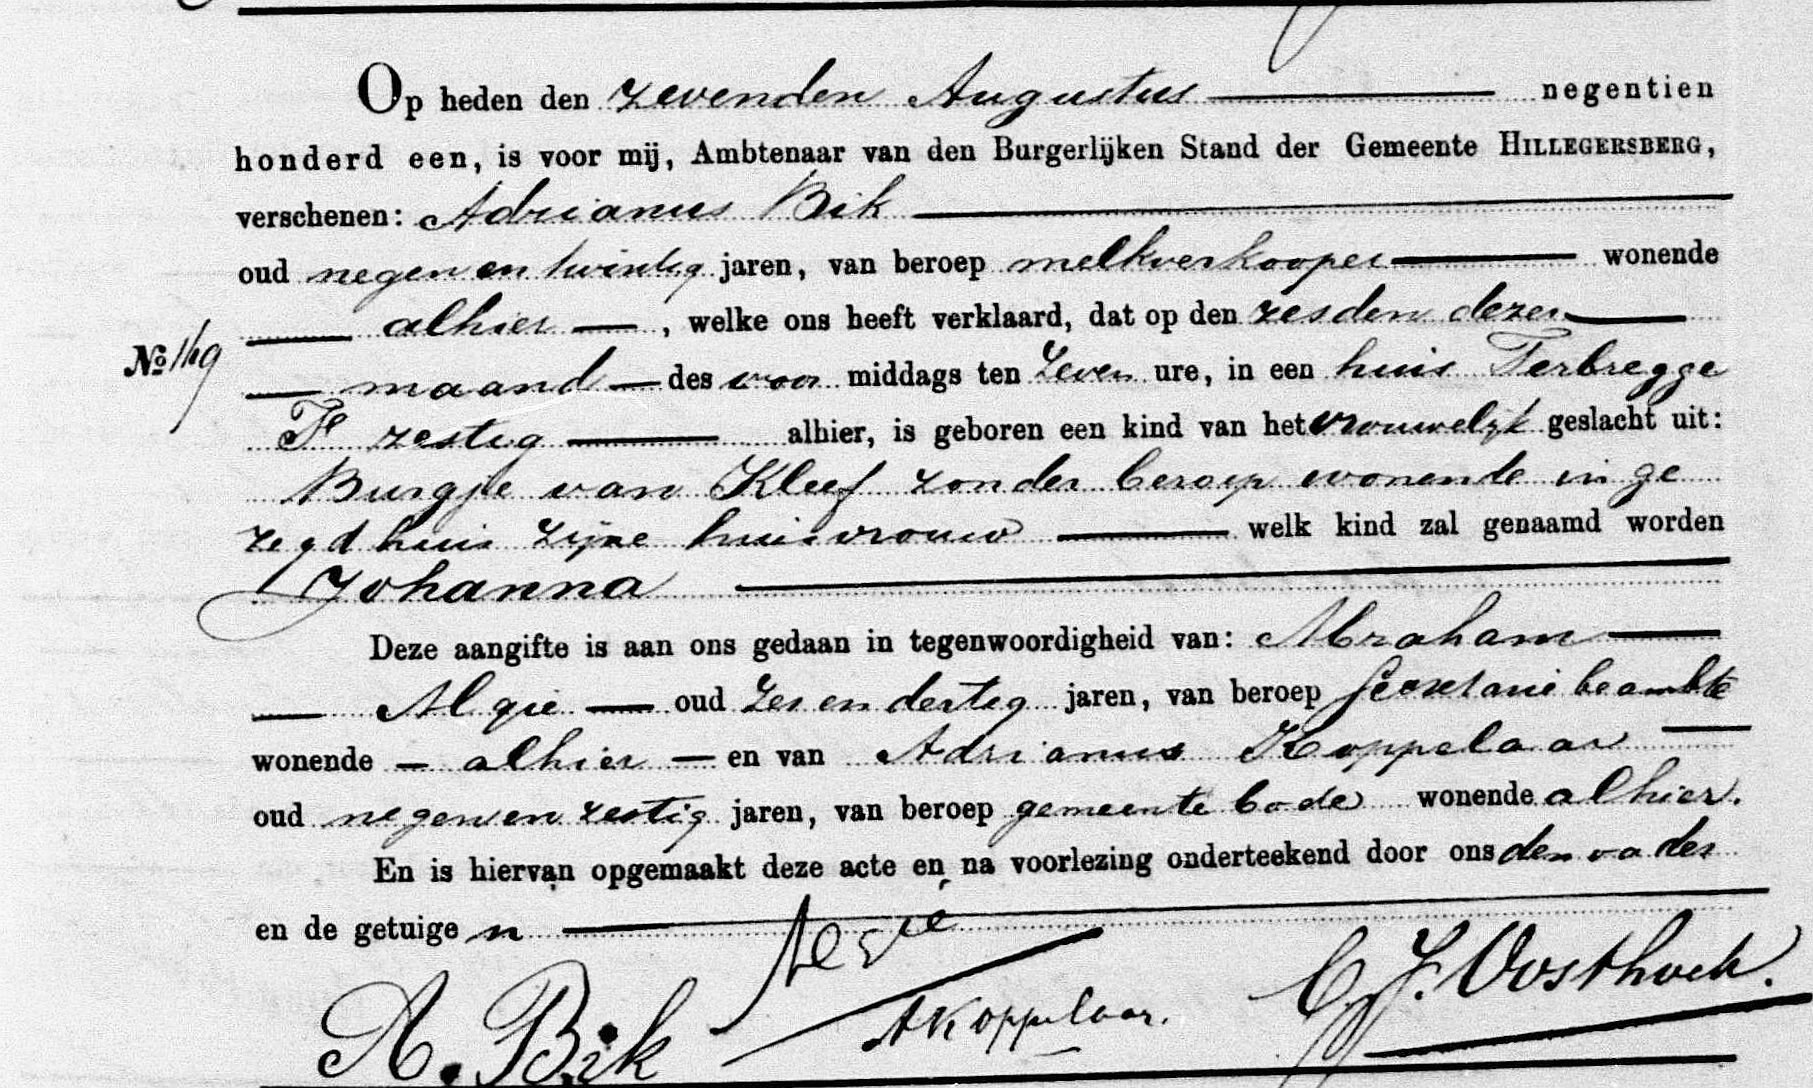 Op heden den zevenden Augustus negentien
honderd een, is voor mij, Ambtenaar van den Burgerlijken Stand der Gemeente HILLEGERSBERG,
verschenen: Adrianus Bik
oud negen en twintig jaren, van beroep melkverkooper wonende
alhier, welke ons heeft verklaard, dat op den zesden dezer
No
maand des voor middags ten Zeven ure, in een huis Terbregge
F zestig alhier, is geboren een kind van het vrouwelijk geslacht uit:
Burgje van Kleef zonder beroep wonende in ge
zegd huis zijne huisvrouw welk kind zal genaamd worden
Johanna
Deze aangifte is aan ons gedaan in tegenwoordigheid van: Abraham
Algie oud Zes en dertig jaren, van beroep Secretarie beambte
wonende alhier en van Adrianus Koppelaar
oud negen en zestig jaren, van beroep gemeente bode wonende alhier.
En is hiervan opgemaakt deze acte en na voorlezing onderteekend door ons den vader
en de getuige n
A. Bik
AKoppelaar.
C J. Oosthoek.